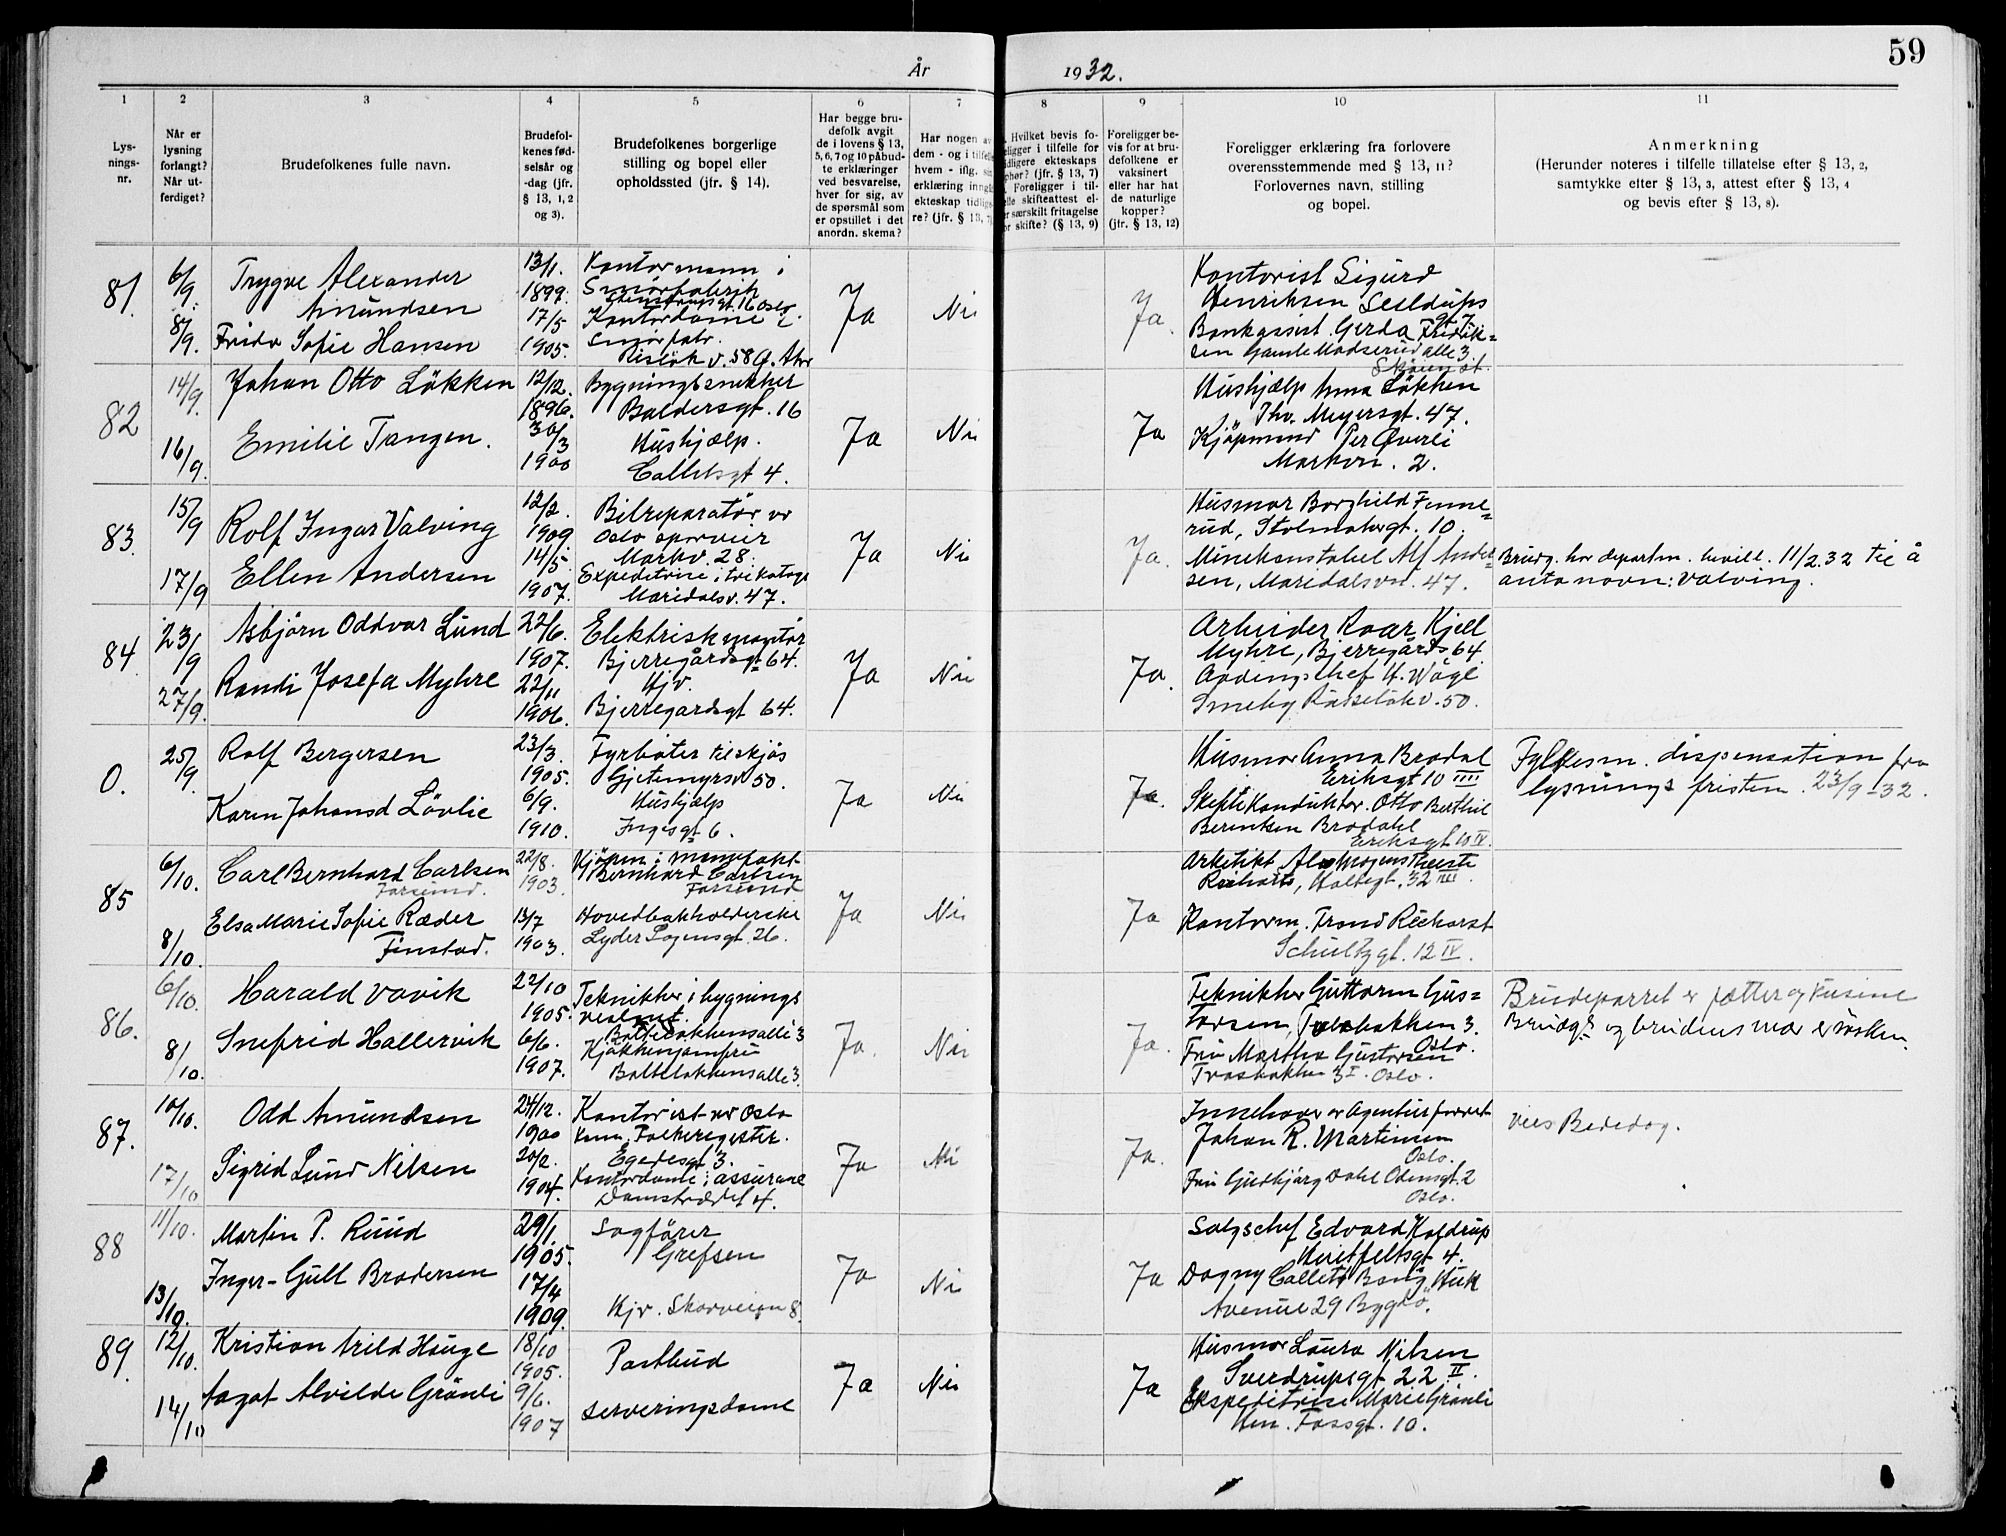 59
År 1932.
1
2
3
4
5
6
7
8
9
10
11
Lys-
nings-
nr.
Når er
lysning
forlangt?
Når ut-
ferdiget?
Brudefolkenes fulle navn.
Brudefol-
kenes fød-
selsår og
-dag (jfr.
§ 13, 1, 2
og 3).
Brudefolkenes borgerlige
stilling og bopel eller
opholdssted (jfr. § 14).
Har begge bru-
defolk avgit
de i lovens § 13,
5, 6, 7 og 10 påbud-
te erklæringer
ved besvarelse,
hver for sig, av
de spørsmål som
er opstillet i det
anordn. skema?
Har nogen av
dem - og i tilfelle
hvem - iflg. sin
erklæring inngå
ekteskap tidlig
re? (jfr. § 13, 7)
Hvilket bevis fo-
religger i tilfelle for
tidligere ekteskaps
ophør? (jfr. § 13, 7)
Foreligger i til-
felle skifteattest el-
er særskilt fritagelse
or skifte? (§ 13, 9)
Foreligger be-
vis for at bru-
defolkene er
vaksinert
eller har hat
de naturlige
kopper?
(jfr. § 13, 12)
Foreligger erklæring fra forlovere
overensstemmende med § 13, 11?
Forlovernes navn, stilling
og bopel.
Anmerkning
(Herunder noteres i tilfelle tillatelse efter § 13, 2,
samtykke efter § 13, 3, attest efter § 13, 4
og bevis efter § 13, 8).
81.
6/9.
8/9.
Trygve Alexander
Amundsen
Frida Sofie Hansen
13/1.
1899.
17/5
1905.
Kontormann i
Smørfabrik
16 Oslo.
Kontordame i
Smørfabr.
v. 58 Ø. Aker
Ja
Nei
Ja.
Kontorist Sigurd
Henriksen
Bankassist. Gerda Fredrik=
sen Gamle Madserud alle 3
Skøyen st.
82
14/9.
16/9.
Johan Otto Løkken
Emilie Tangen.
12/12.
1896.
30/3
1900
Bygningssnekker
Baldersgt. 16
Hushjælp.
Colletsgt 4.
Ja
Nei
Ja
Hushjælp Anna Løkken
Thv. Meyersgt. 47.
Kjøpmand Per Øverli
Markvn. 2.
83.
15/9
17/9
Rolf Ingar Valving
Ellen Andersen
12/2.
1909
14/5
1907.
Bilreparatør vr
Oslo sporveier
Markv. 28.
Expeditrise i trikotage
Maridalsv. 47.
Ja
Nei
Ja.
Husmor Borghild Finne=
rud, gt. 10.
Alf Ander=
sen, Maridalsvn. 47.
Brudg. har departm. bevill. 11/2.32 til å
anta navn: Valving.
84.
23/9
27/9.
Asbjørn Oddvar Lund
Randi Josefa Myhre
22/6.
1907.
22/11
1906.
Elektrisk montør
Bjerregårdsgt 64.
Hjv.
Bjerregårdsgt 64.
Ja
Nei
Ja.
Arbeider Roar Kjell
Myhre, Bjerregårds 64
50.
0.
25/9.
Rolf Bergersen
Karen Johansd Løvlie
23/3.
1905.
6/9.
1910.
Fyrbøter tilskjøs
Gjetemyrsv 50.
Hushjælp
Ingesgt 6.
Ja
Nei
Ja.
Husmor Anna Brodal
Eriksgt 10 IIII
Otto Berthil
Berentsen Brodahl
Eriksgt 10 IV.
Fylkesm. dispensation fra
lysnings fristen. 23/9-32.
85
6/10.
8/10.
Carl Bernhard Carlsen
Farsund.
Elsa Marie Sofie Ræder
Finstad.
22/8.
1903.
13/7
1903.
Kjøpm. i manufakt.
Bernhard Carlsen
Farsund
Hovedbokholderske
Lyder Sagensgt. 26.
Ja
Nei
Ja
Arkitekt
Holtegt. 32 III.
Kontorm. Trond
Schultzgt. 12 IV.
86.
6/10.
8/10.
Harald Vavik
Snefrid Hallervik
22/10
1905.
6/6.
1907.
Tekniker i bygnings
Balteløkkensallé 3
Kjøkkenjomfru
Balteløkkensalle 3.
Ja.
Nei
Ja.
Tekniker Guttorm Gus=
torsen, 3.
Oslo.
Fru Martha Gustorsen
3 I. Oslo.
Brudeparret er fætter og kusine
Brudg.s og brudens mor er søsken.
87.
10/10.
17/10
Odd Amundsen
Sigrid Lund Nilsen
24/12.
1900
20/2.
1904.
Kontorist vr Oslo
Kom. Folkeregister.
Egedesgt 3.
Kontordame i assurane
Damstrædet 4.
Ja
Nei
Ja.
Innehaver av Agenturforret
Johan R. Martinsen
Oslo.
Fru Gudbjørg Dahl Odinsgt. 2
Oslo.
vies Bededag.
88
11/10.
13/10.
Martin P. Ruud
Inger-Gull Brodersen
29/1.
1905.
17/4
1909.
Sagfører
Grefsen
Hjv. Skovveien 8.
Ja
Nei
Ja
Salgschef Edvard Koldrup
gt. 4.
Dagny Huk
Avenue 29 Bygdø.
89.
12/10.
14/10
Kristian Arild Hauge
Aagot Alvilde Grønli
18/10
1905.
9/6.
1907
Postbud
Serveringsdame
Ja
Nei
Ja
Husmor Laura Nilsen
Sverdrupsgt 22 II.
Ekspeditrise Marie Grønli
Hen. Fossgt. 10.